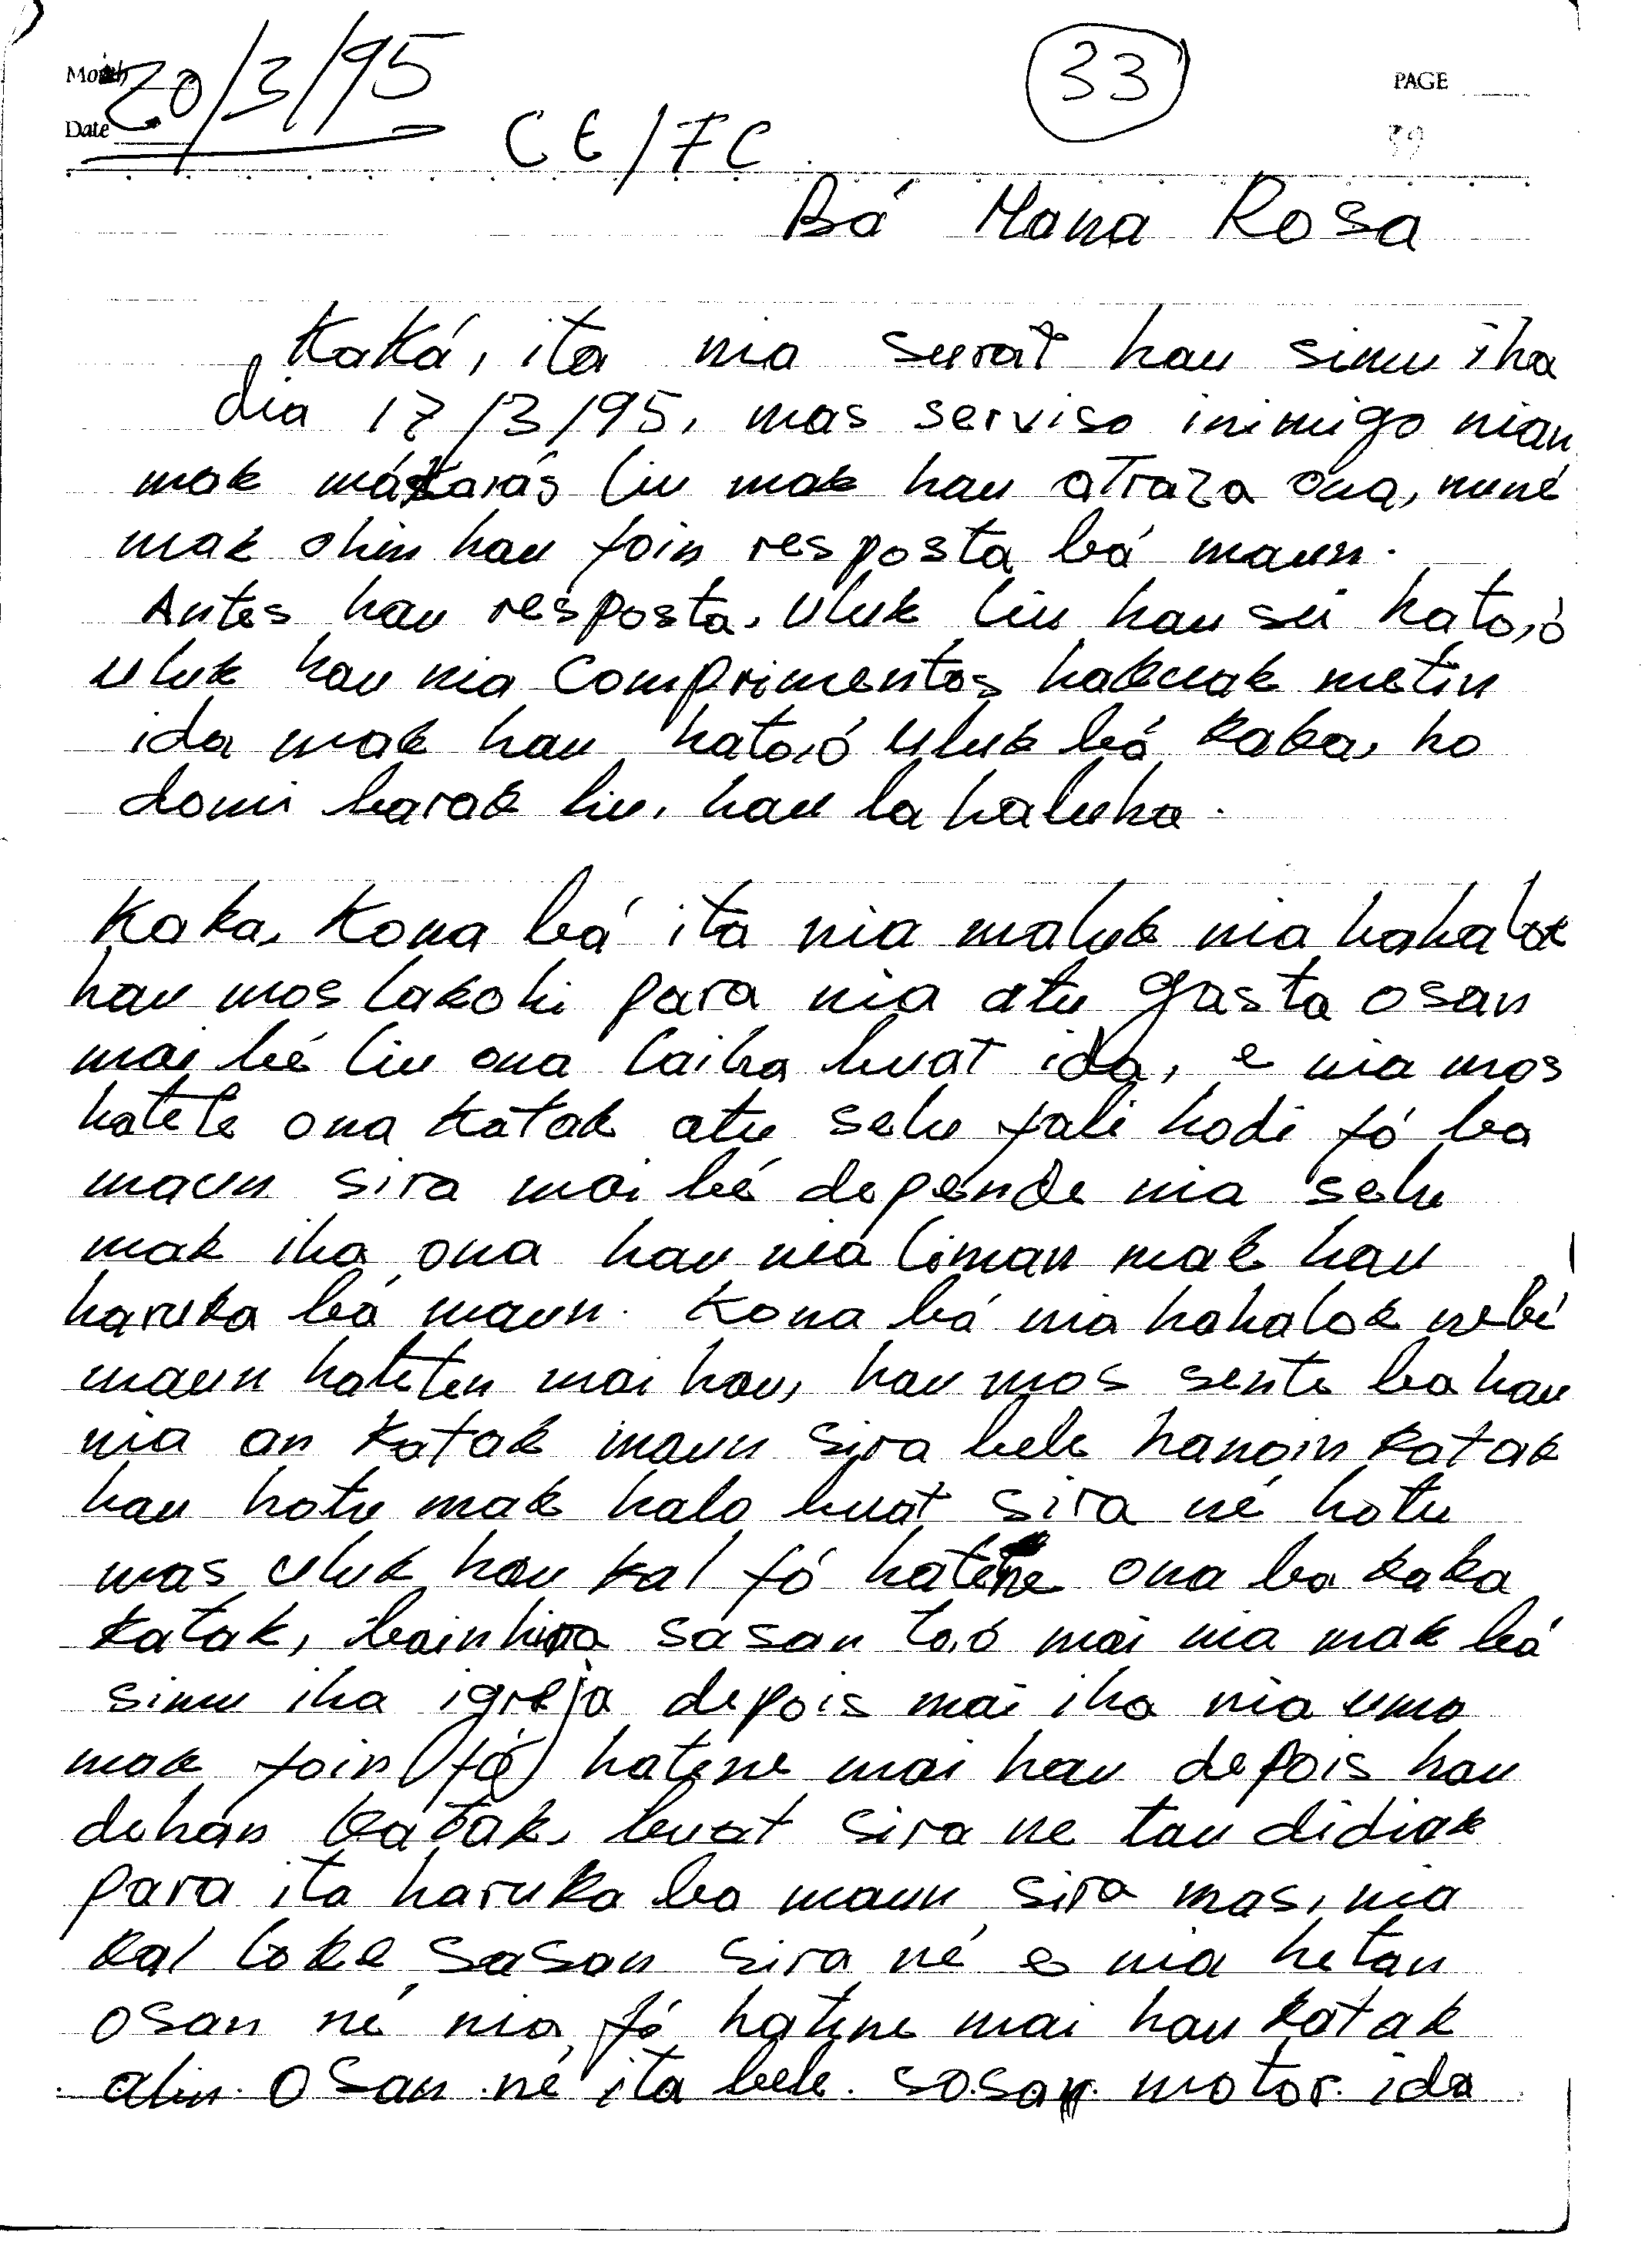 Month
20/3/95
33
PAGE
Date
39
CE/FC
Bá Mana Rosa
Kaká, ita nia surat hau simu iha
dia 17/3/95, mas serviso inimigo nian
mak mákarás liu mak hau atraza ona, nuné
mak ohin hau foin resposta bá maun.
Antes hau resposta, uluk liu hau sei hato,ó
uluk hau nia Comprimentos hakuak metin
ida mak hau hato,ó uluk bá kaka, ho
domi barak liu, hau la haluha.
Kaka, Kona bá ita nia maluk nia hahalok
hau mos lakohi para nia atu gasta osan
mai bé liu ona laiha buat ida, e nia mos
hatete ona katak atu selu fali hodi fó ba
maun sira mai bé depende nia selu
mak iha ona hau nia liman mak hau
haruka bá maun. Kona bá nia hahalok nebé
maun hateten mai hau, hau mos sente ba hau
nia an katak maun sira bele hanoin katak
hau hotu mak halo buat sira né hotu
mas uluk hau kal fó hatene ona ba kaka
katak, bainhira sasan to,ó mai nia mak bá
simu iha igreja depois mai iha nia uma
mak foin (fó) hatene mai hau depois hau
dehan katak, buat sira ne tau didiak
para ita haruka ba maun sira mas, nia
kal loke sasan sira né e nia hetan
osan né nia fó hatene mai hau katak
alin osan né ita bele sosan motor ida